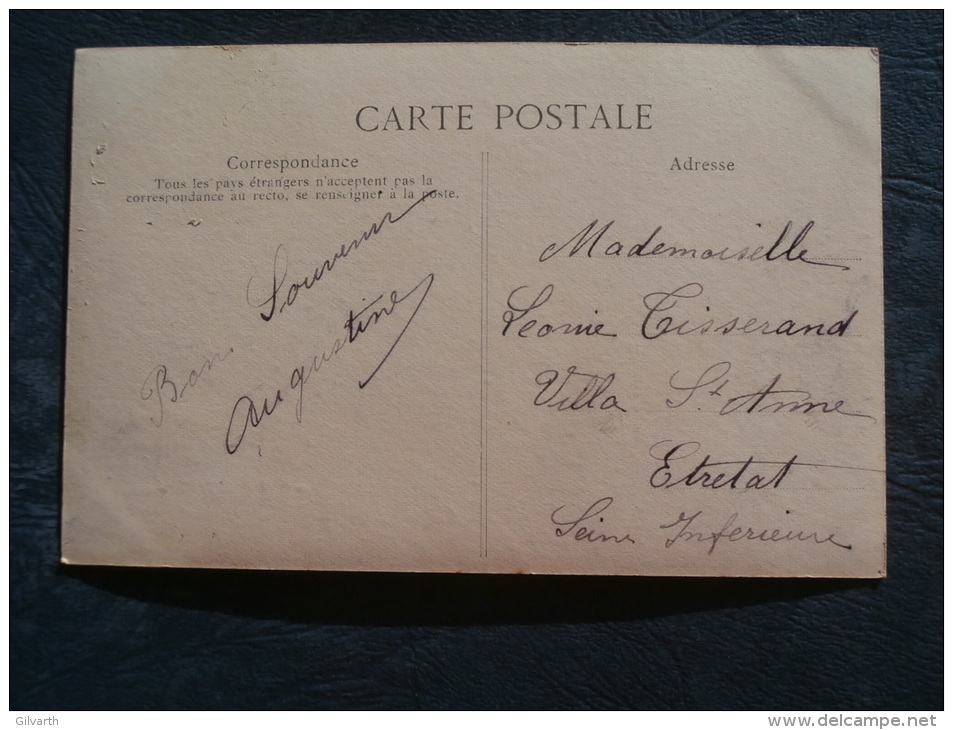 CARTE POSTALE
Correspondance
Tous les pays étrangers n'acceptent pas la
correspondance au recto, se renseigner à la poste.
Bon Souvenir
Augustine
Adresse
Mademoiselle
Leonie Tisserand
Villa St Anne
Etretat
Seine Inferieure
Gilvarth
www.delcampe.net